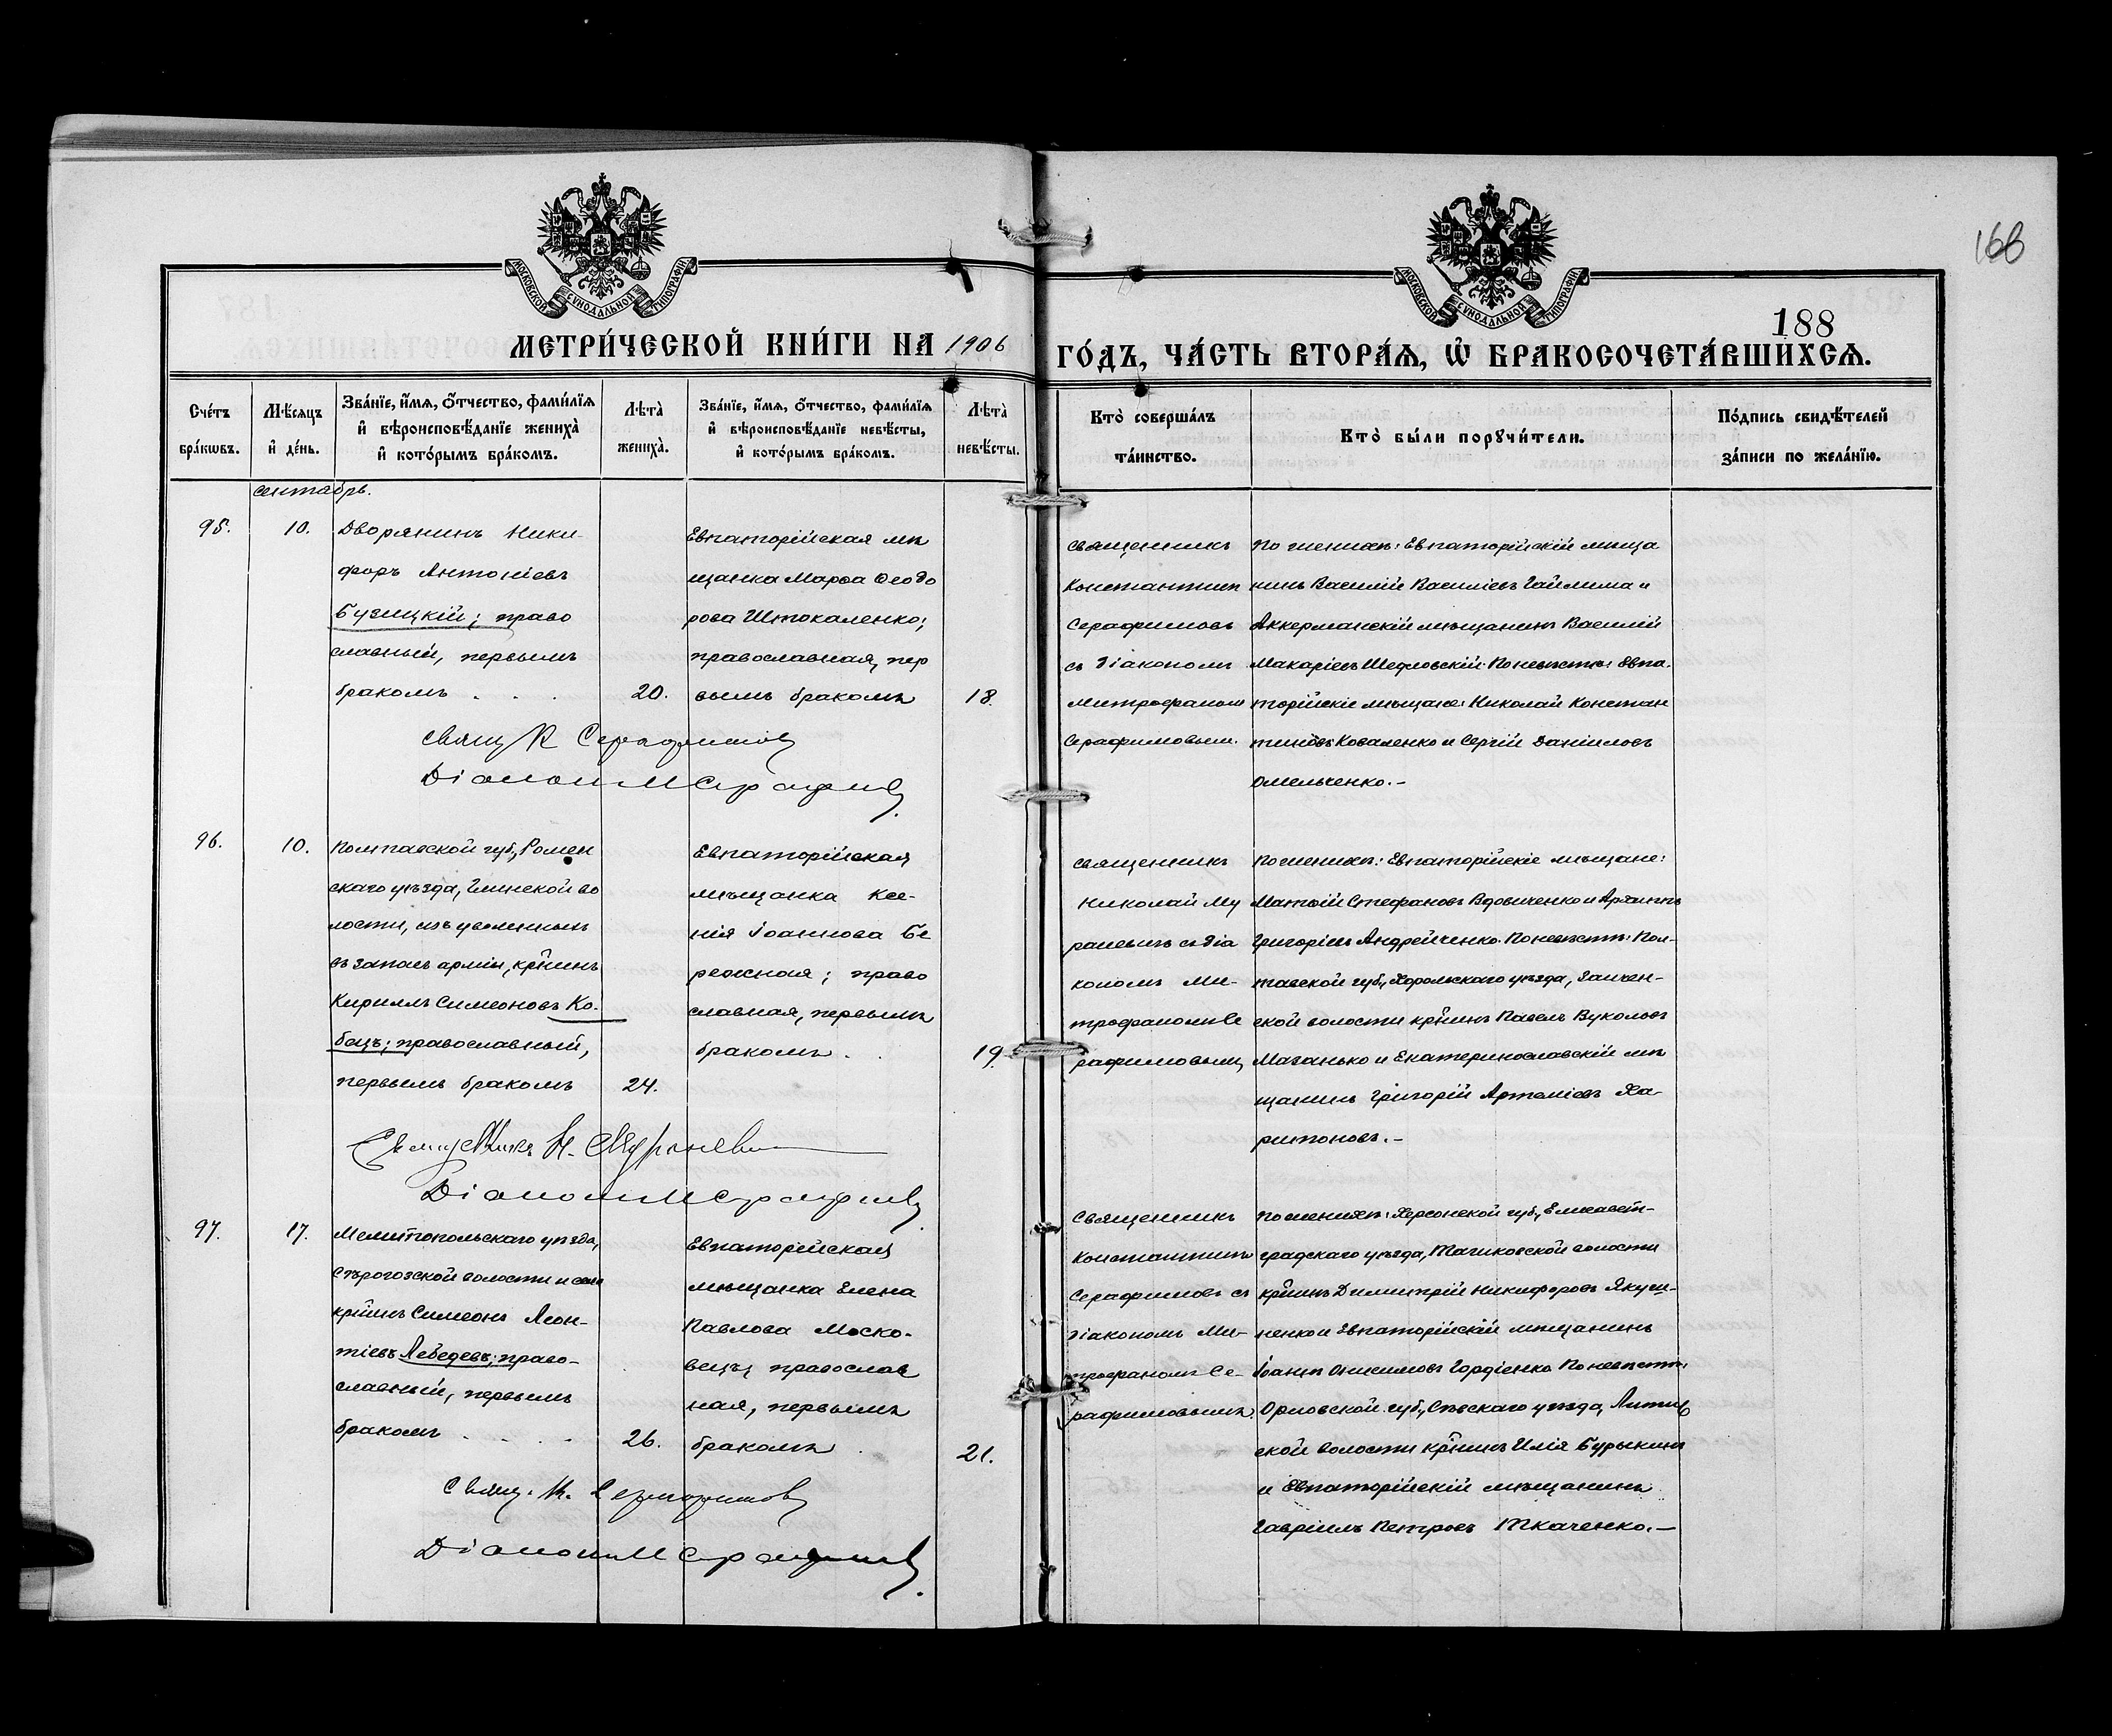 166
188
МОСКОВСКОЙ СѴНОДАЛЬНОЙ ТИПОГРАФІИ
МОСКОВСКОЙ СѴНОДАЛЬНОЙ ТИПОГРАФІИ
МЕТРИ́ЧЕСКОЙ КНИ́ГИ НА 1906 ГО́ДЪ, ЧА́СТЬ ВТОРА́Ѧ, Ѡ҆ БРАКОСОЧЕТА́ВШИХСѦ.
Сче́тъ бра́кѡвъ.
Мѣ́сяцъ и҆ де́нь.
Зва́нїе, и҆́мѧ, ѻ҆́тчество, фамилїѧ
и҆ вѣроисповѣ́данїе жениха̀
и҆ кото́рымъ бра́комъ.
Лѣта̀ жениха̀.
Зва́нїе, и҆́мѧ, ѻ҆́тчество, фамилїѧ
и҆ вѣроисповѣ́данїе невѣ́сты,
и҆ кото́рымъ бра́комъ.
Лѣта̀ невѣ́сты.
Кто̀ соверша́лъ
та́инство.
Кто̀ бы́ли порꙋчи́тели.
По́дпись свидѣ́телей
за́писи по жела́нїю.
сентабрь.
95.
10.
Дворянинъ Ники-
форъ Антоніевъ
Бузицкій; право
славный, первымъ
бракомъ . . .
20.
Евпаторійская мѣ
щанка Марѳа Ѳеодо
рова Штокаленко;
православная, пер
вымъ бракомъ
18.
священникъ
Константин
Серафимовъ
съ діакономъ
Митрофаном
Серафимовым.
По женихѣ: Евпаторійскій мѣща
нинъ Василій Васильевъ Гаймима и
Аккерманскій мѣщанинъ Василій
Макаріевъ Шедловскій. По невѣстѣ: Евпа-
торійскіе мѣщане: Николай Констан
тиновъ Коваленко и Сергій Даніиловъ
Омельченко.-
Свящ К Серафимовъ
Діаконъ М Серафимовъ.
96.
10.
Полтавской губ., Ромен
скаго уѣзда, Глинской во
лости, изъ уволенныхъ
въ запасъ арміи, кр-нинъ
Кириллъ Симеоновъ Ко-
бецъ; православный,
первымъ бракомъ
24.
Евпаторійская
мѣщанка Ксе-
нія Іоаннова Бе
режная; право
славная, первымъ
бракомъ . .
19.
священникъ
Николай Му
раневичъ съ діа
кономъ Ми-
трофаномъ Се
рафимовымъ
По женихѣ: Евпаторійскіе мѣщане:
Матѳій Стефановъ Вдовиченко и
Григоріевъ Андрейченко. По невѣстѣ: Пол-
тавской губ., Хорольскаго уѣзда,
ской волости кр-нинъ Павелъ Вуколовъ
Мазанько и Екатеринославскій мѣ
щанинъ Григорій Артеміевъ Ха-
ритоновъ.-
Священникъ Н. Мураневич
Діаконъ М Серафимовъ.
97.
17.
Мелитопольскаго уѣзда,
Сѣрогозской волости и села
кр-нинъ Симеонъ Леон-
тіевъ Лебедевъ; право-
славный, первымъ
бракомъ . . . .
26.
Евпаторійская
мѣщанка Елена
Павлова Моско-
вецъ; православ
ная, первымъ
бракомъ .
21.
Священникъ
Константинъ
Серафимовъ съ
діакономъ Ми-
трофаномъ Се-
рафимовымъ.
По женихѣ: Херсонской губ., Елисавет-
градскаго уѣзда, волости
кр-нинъ Димитрій Никифоровъ Якуш-
ненко и Евпаторійскій мѣщанинъ
Іоаннъ Онисимовъ Гордіенко. По невѣстѣ:
Орловской губ., Сѣвскаго уѣзда,
ской волости кр-нинъ Илія Бурыкинъ
и Евпаторійскій мѣщанинъ
Гавріилъ Петровъ Ткаченко.-
Свящ. К. Серафимовъ
Діаконъ М Серафимовъ.